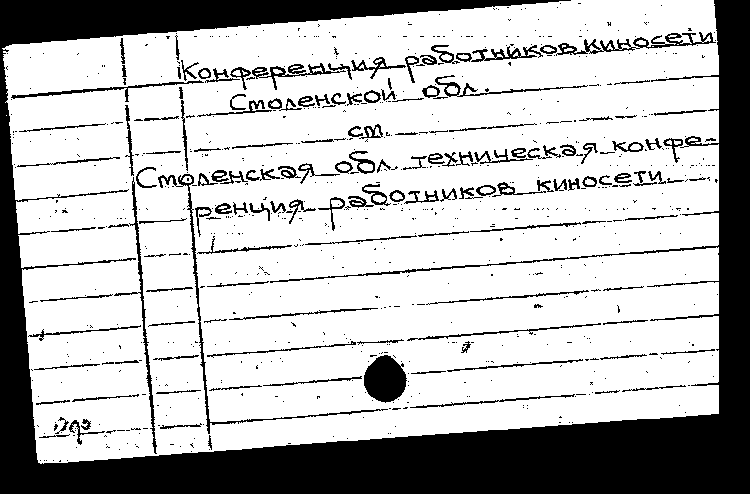 Конференция работников киносети
Смоленской обл.
см.
Смоленская обл. техническая конфе-
ренция работников киносети.